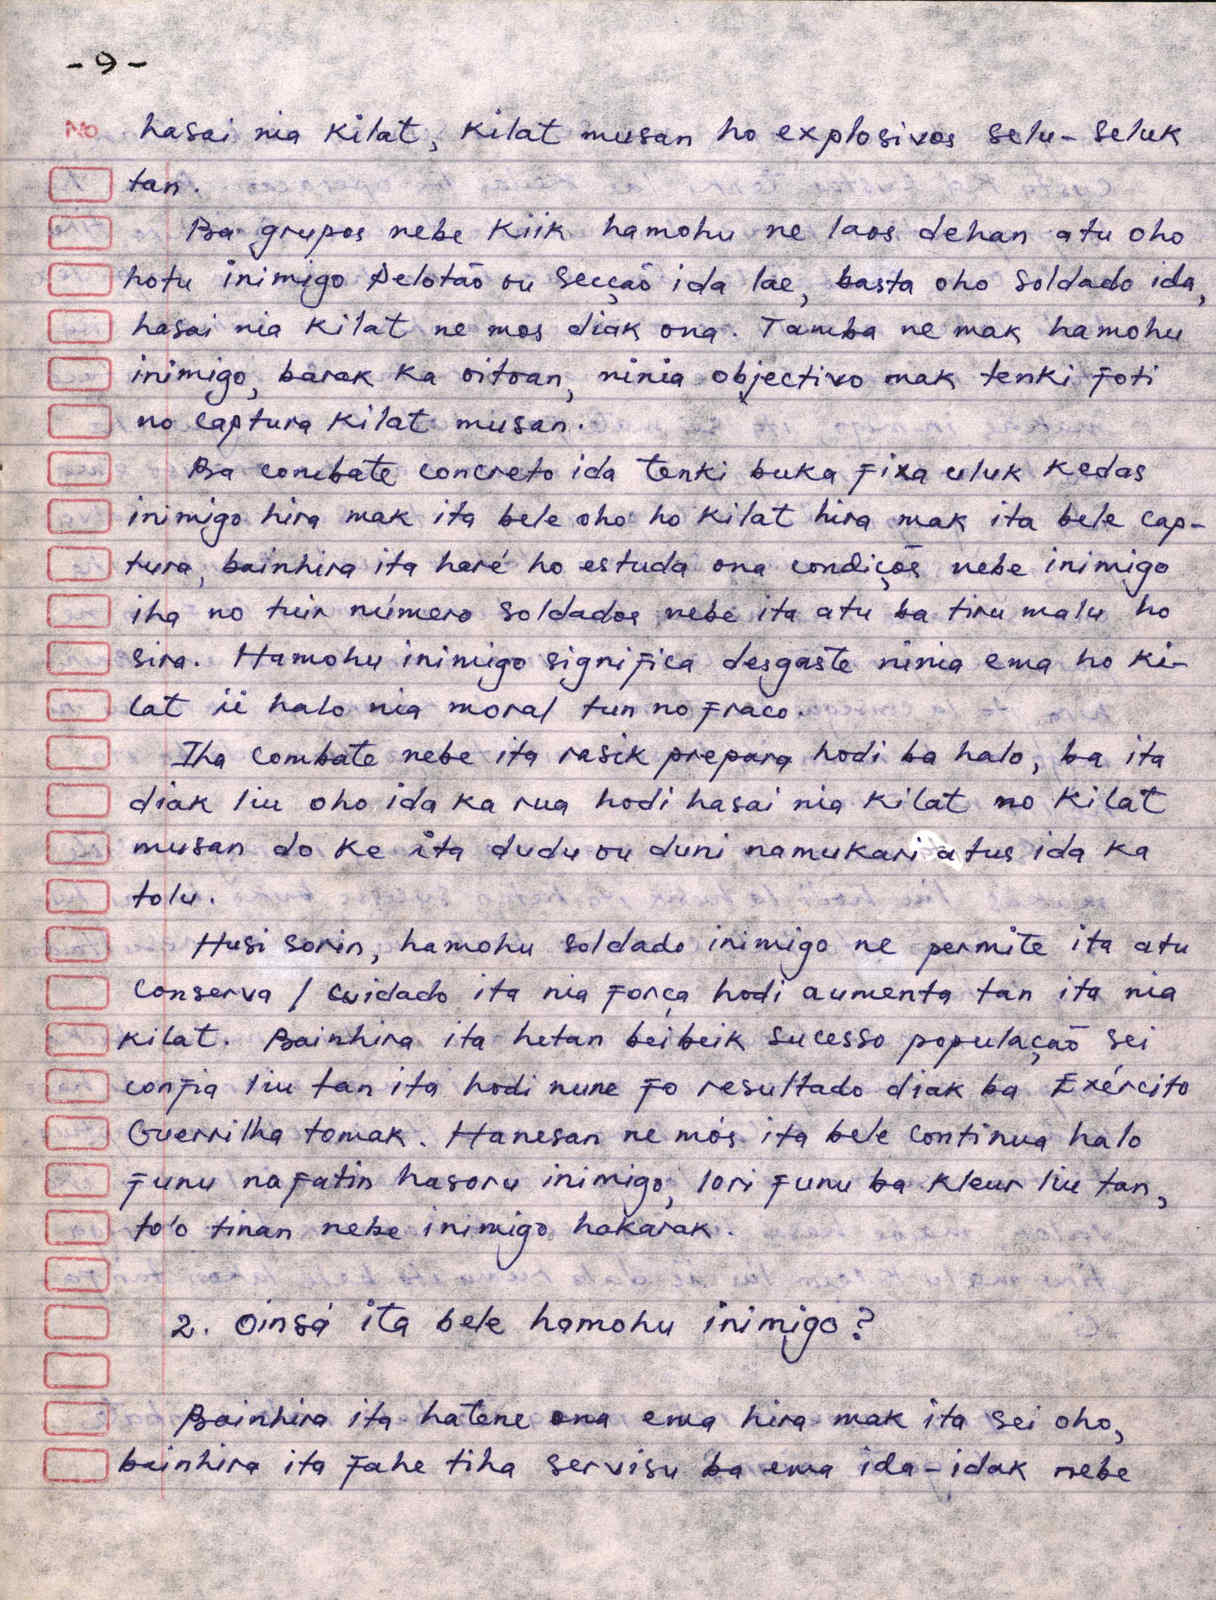 - 9 -
No hasai nia kilat, kilat musan ho explosivos selu-seluk
tan.
Ba grupos nebe kiik hamohu ne laos dehan atu oho
hotu inimigo Pelotão ou Secção ida lae, basta oho soldado ida,
hasai nia kilat ne mos diak ona. Tamba ne mak hamohu
inimigo, barak ka oitoan, ninia objectivo mak tenki foti
no captura kilat musan.
Ba combate concreto ida tenki buka fixa uluk kedas
inimigo hira mak ita bele oho ho kilat hira mak ita bele cap-
tura, bainhira ita haré ho estuda ona condiçõs nebe inimigo
iha no tuir número soldados nebe ita atu ba tiru malu ho
sira. Hamohu inimigo significa desgaste ninia ema ho ki-
lat ii halo nia moral tun no fraco.
Iha combate nebe ita rasik prepara hodi ba halo, ba ita
diak liu oho ida ka rua hodi hasai nia kilat no kilat
musan do ke ita dudu ou duni namukari atus ida ka
tolu.
Husi sorin, hamohu soldado inimigo ne permite ita atu
conserva / cuidado ita nia força hodi aumenta tan ita nia
kilat. Bainhira ita hetan beibeik sucesso população sei
confia liu tan ita hodi nune fo resultado diak ba Exército
Guerrilha tomak. Hanesan ne mós ita bele continua halo
funu nafatin hasoru inimigo, lori funu ba kleur liu tan,
to'o tinan nebe inimigo hakarak.
2. Oinsá ita bele hamohu inimigo?
Bainhira ita hatene ona ema hira mak ita sei oho,
bainhira ita fahe tiha servisu ba ema ida-idak nebe